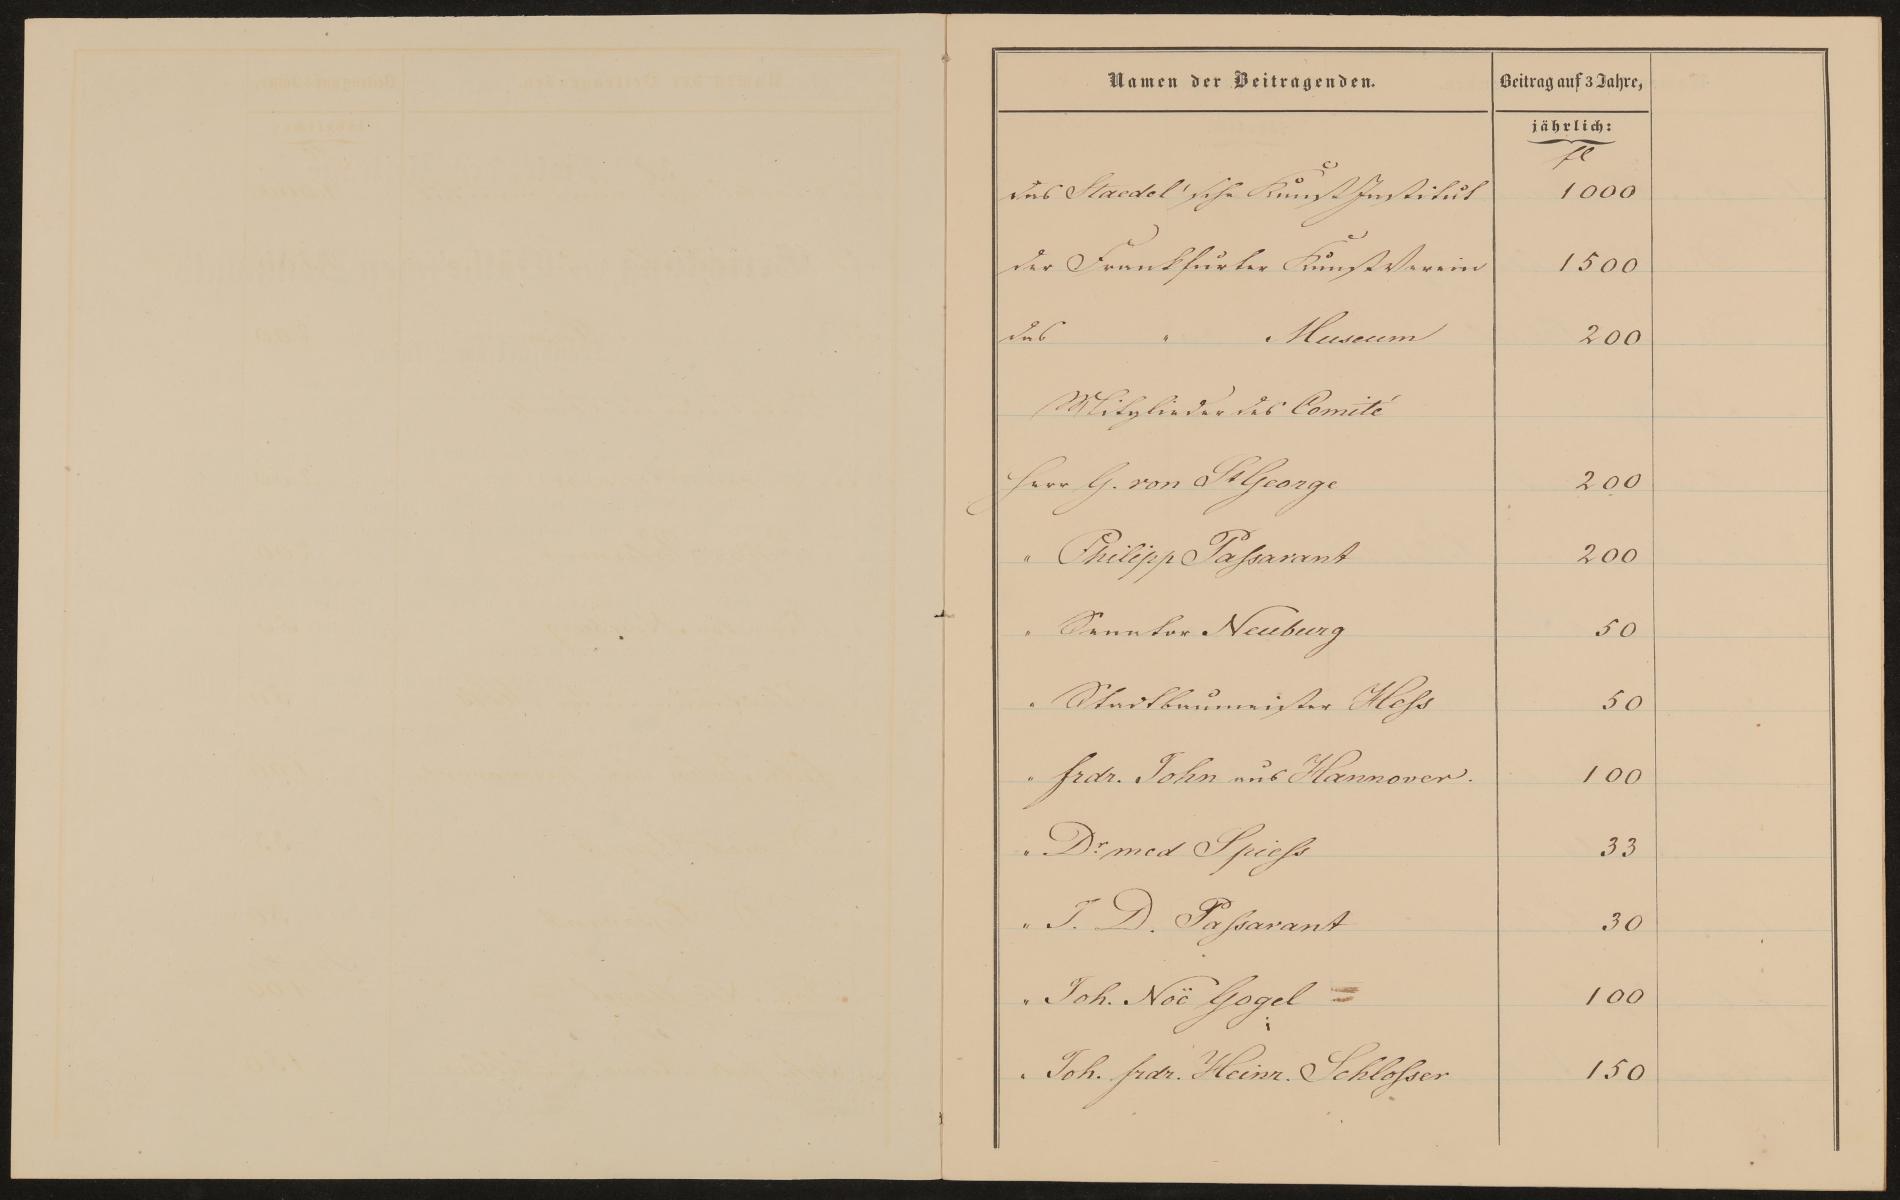 Namen der Beitragenden. Beitrag auf 3 Jahre,
jährlich:
fl
das Staedel'sche Kunst Institut 1000
der Frankfurter Kunst Verein 1500
das " Museum 200
Mitglieder des Comité
Herr G. von St George 200
" Philipp Paſsavant 200
" Senator Neuburg 50
" Stadtbaumeister Heſs 50
" frdr. John aus Hannover. 100
" Dr. med Spieſs 33
" J. D. Paſsavant 30
" Joh. Noë Gogel 100
" Joh. frdr. Heinr. Schloſser 150